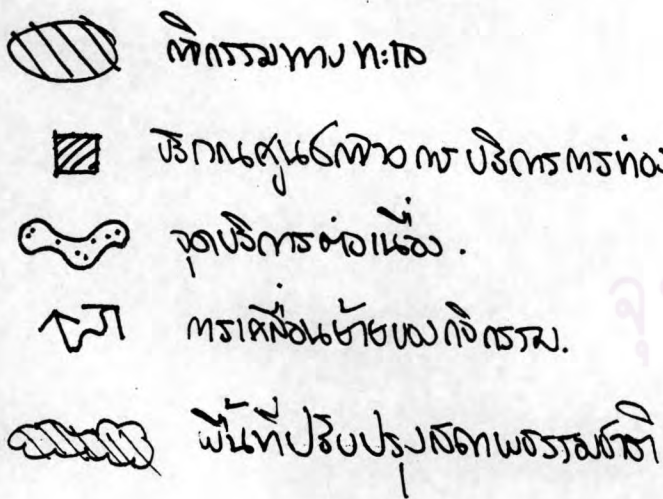 กิจกรรมทางทะเล
บริเวณศูนย์กลางการบริการการท่อง
จุดบริการต่อเนื่อง.
การเคลื่อนย้ายของกิจกรรม.
พื้นที่ปรับปรุงสภาพธรรมชาติ
จุ